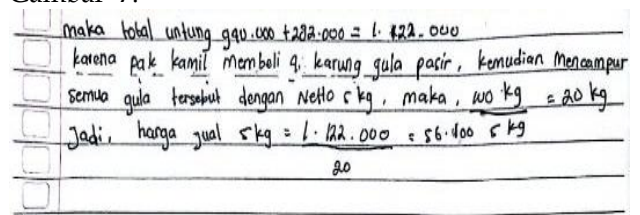 maka total untung 940.000 + 282.000 = 1.122.000
karena pak kamil membeli 2 karung gula pasir, kemudian Mencampur
semua gula tersebut dengan Netto 5 kg, maka, 100 kg = 20 kg
Jadi, harga jual 5 kg = 1.122.000 = 56.100 5 kg
20